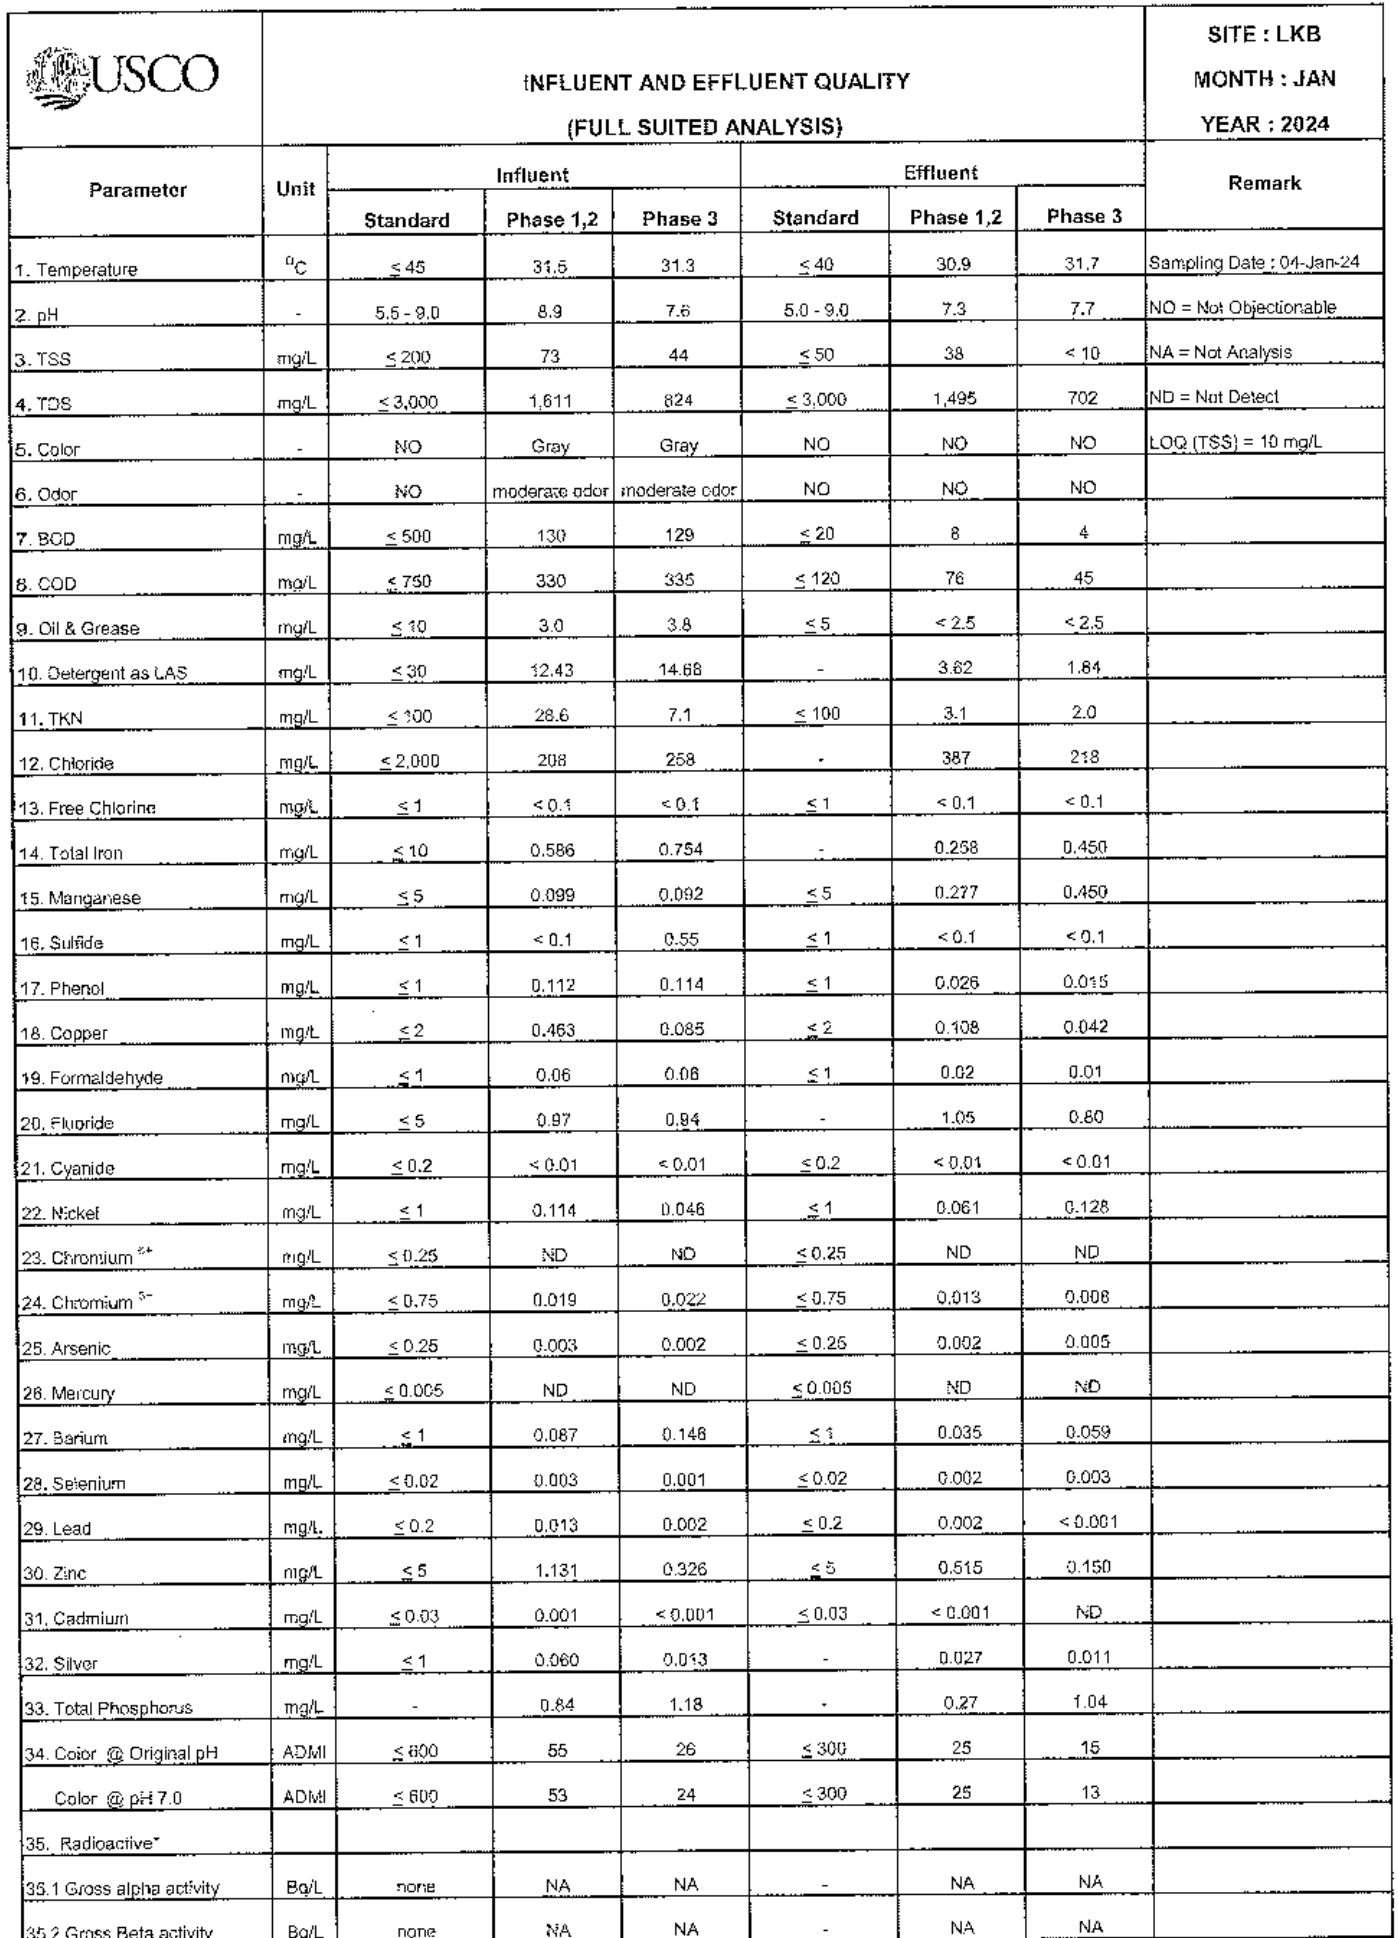 USCO
INFLUENT AND EFFLUENT QUALITY
(FULL SUITED ANALYSIS)
SITE : LKB
MONTH : JAN
YEAR : 2024
Parameter Unit Influent Effluent Remark
Standard Phase 1,2 Phase 3 Standard Phase 1,2 Phase 3
1. Temperature °C ≤ 45 31.5 31.3 ≤ 40 30.9 31.7 Sampling Date : 04-Jan-24
2. pH - 5.5 - 9.0 8.9 7.6 5.0 - 9.0 7.3 7.7 NO = Not Objectionable
3. TSS mg/L ≤ 200 73 44 ≤ 50 38 < 10 NA = Not Analysis
4. TDS mg/L ≤ 3,000 1,611 824 ≤ 3,000 1,495 702 ND = Not Detect
5. Color - NO Gray Gray NO NO NO LOQ (TSS) = 10 mg/L
6. Odor - NO moderate odor moderate odor NO NO NO
7. BOD mg/L ≤ 500 130 129 ≤ 20 8 4
8. COD mg/L ≤ 750 330 335 ≤ 120 76 45
9. Oil & Grease mg/L ≤ 10 3.0 3.8 ≤ 5 < 2.5 < 2.5
10. Detergent as LAS mg/L ≤ 30 12.43 14.68 - 3.62 1.84
11. TKN mg/L ≤ 100 28.6 7.1 ≤ 100 3.1 2.0
12. Chloride mg/L ≤ 2,000 208 258 - 387 218
13. Free Chlorine mg/L ≤ 1 < 0.1 < 0.1 ≤ 1 < 0.1 < 0.1
14. Total Iron mg/L ≤ 10 0.586 0.754 - 0.258 0.450
15. Manganese mg/L ≤ 5 0.099 0.092 ≤ 5 0.277 0.450
16. Sulfide mg/L ≤ 1 < 0.1 0.55 ≤ 1 < 0.1 < 0.1
17. Phenol mg/L ≤ 1 0.112 0.114 ≤ 1 0.026 0.015
18. Copper mg/L ≤ 2 0.463 0.085 ≤ 2 0.108 0.042
19. Formaldehyde mg/L ≤ 1 0.06 0.06 ≤ 1 0.02 0.01
20. Fluoride mg/L ≤ 5 0.97 0.94 - 1.05 0.80
21. Cyanide mg/L ≤ 0.2 < 0.01 < 0.01 ≤ 0.2 < 0.01 < 0.01
22. Nickel mg/L ≤ 1 0.114 0.046 ≤ 1 0.061 0.128
23. Chromium 6+ mg/L ≤ 0.25 ND ND ≤ 0.25 ND ND
24. Chromium 3+ mg/L ≤ 0.75 0.019 0.022 ≤ 0.75 0.013 0.006
25. Arsenic mg/L ≤ 0.25 0.003 0.002 ≤ 0.25 0.002 0.005
26. Mercury mg/L ≤ 0.005 ND ND ≤ 0.005 ND ND
27. Barium mg/L ≤ 1 0.087 0.146 ≤ 1 0.035 0.059
28. Selenium mg/L ≤ 0.02 0.003 0.001 ≤ 0.02 0.002 0.003
29. Lead mg/L ≤ 0.2 0.013 0.002 ≤ 0.2 0.002 < 0.001
30. Zinc mg/L ≤ 5 1.131 0.326 ≤ 5 0.515 0.150
31. Cadmium mg/L ≤ 0.03 0.001 < 0.001 ≤ 0.03 < 0.001 ND
32. Silver mg/L ≤ 1 0.060 0.013 - 0.027 0.011
33. Total Phosphorus mg/L - 0.84 1.18 - 0.27 1.04
34. Color @ Original pH ADMI ≤ 600 55 26 ≤ 300 25 15
Color @ pH 7.0 ADMI ≤ 600 53 24 ≤ 300 25 13
35. Radioactive*
35.1 Gross alpha activity Bq/L none NA NA - NA NA
35.2 Gross Beta activity Bq/L none NA NA - NA NA